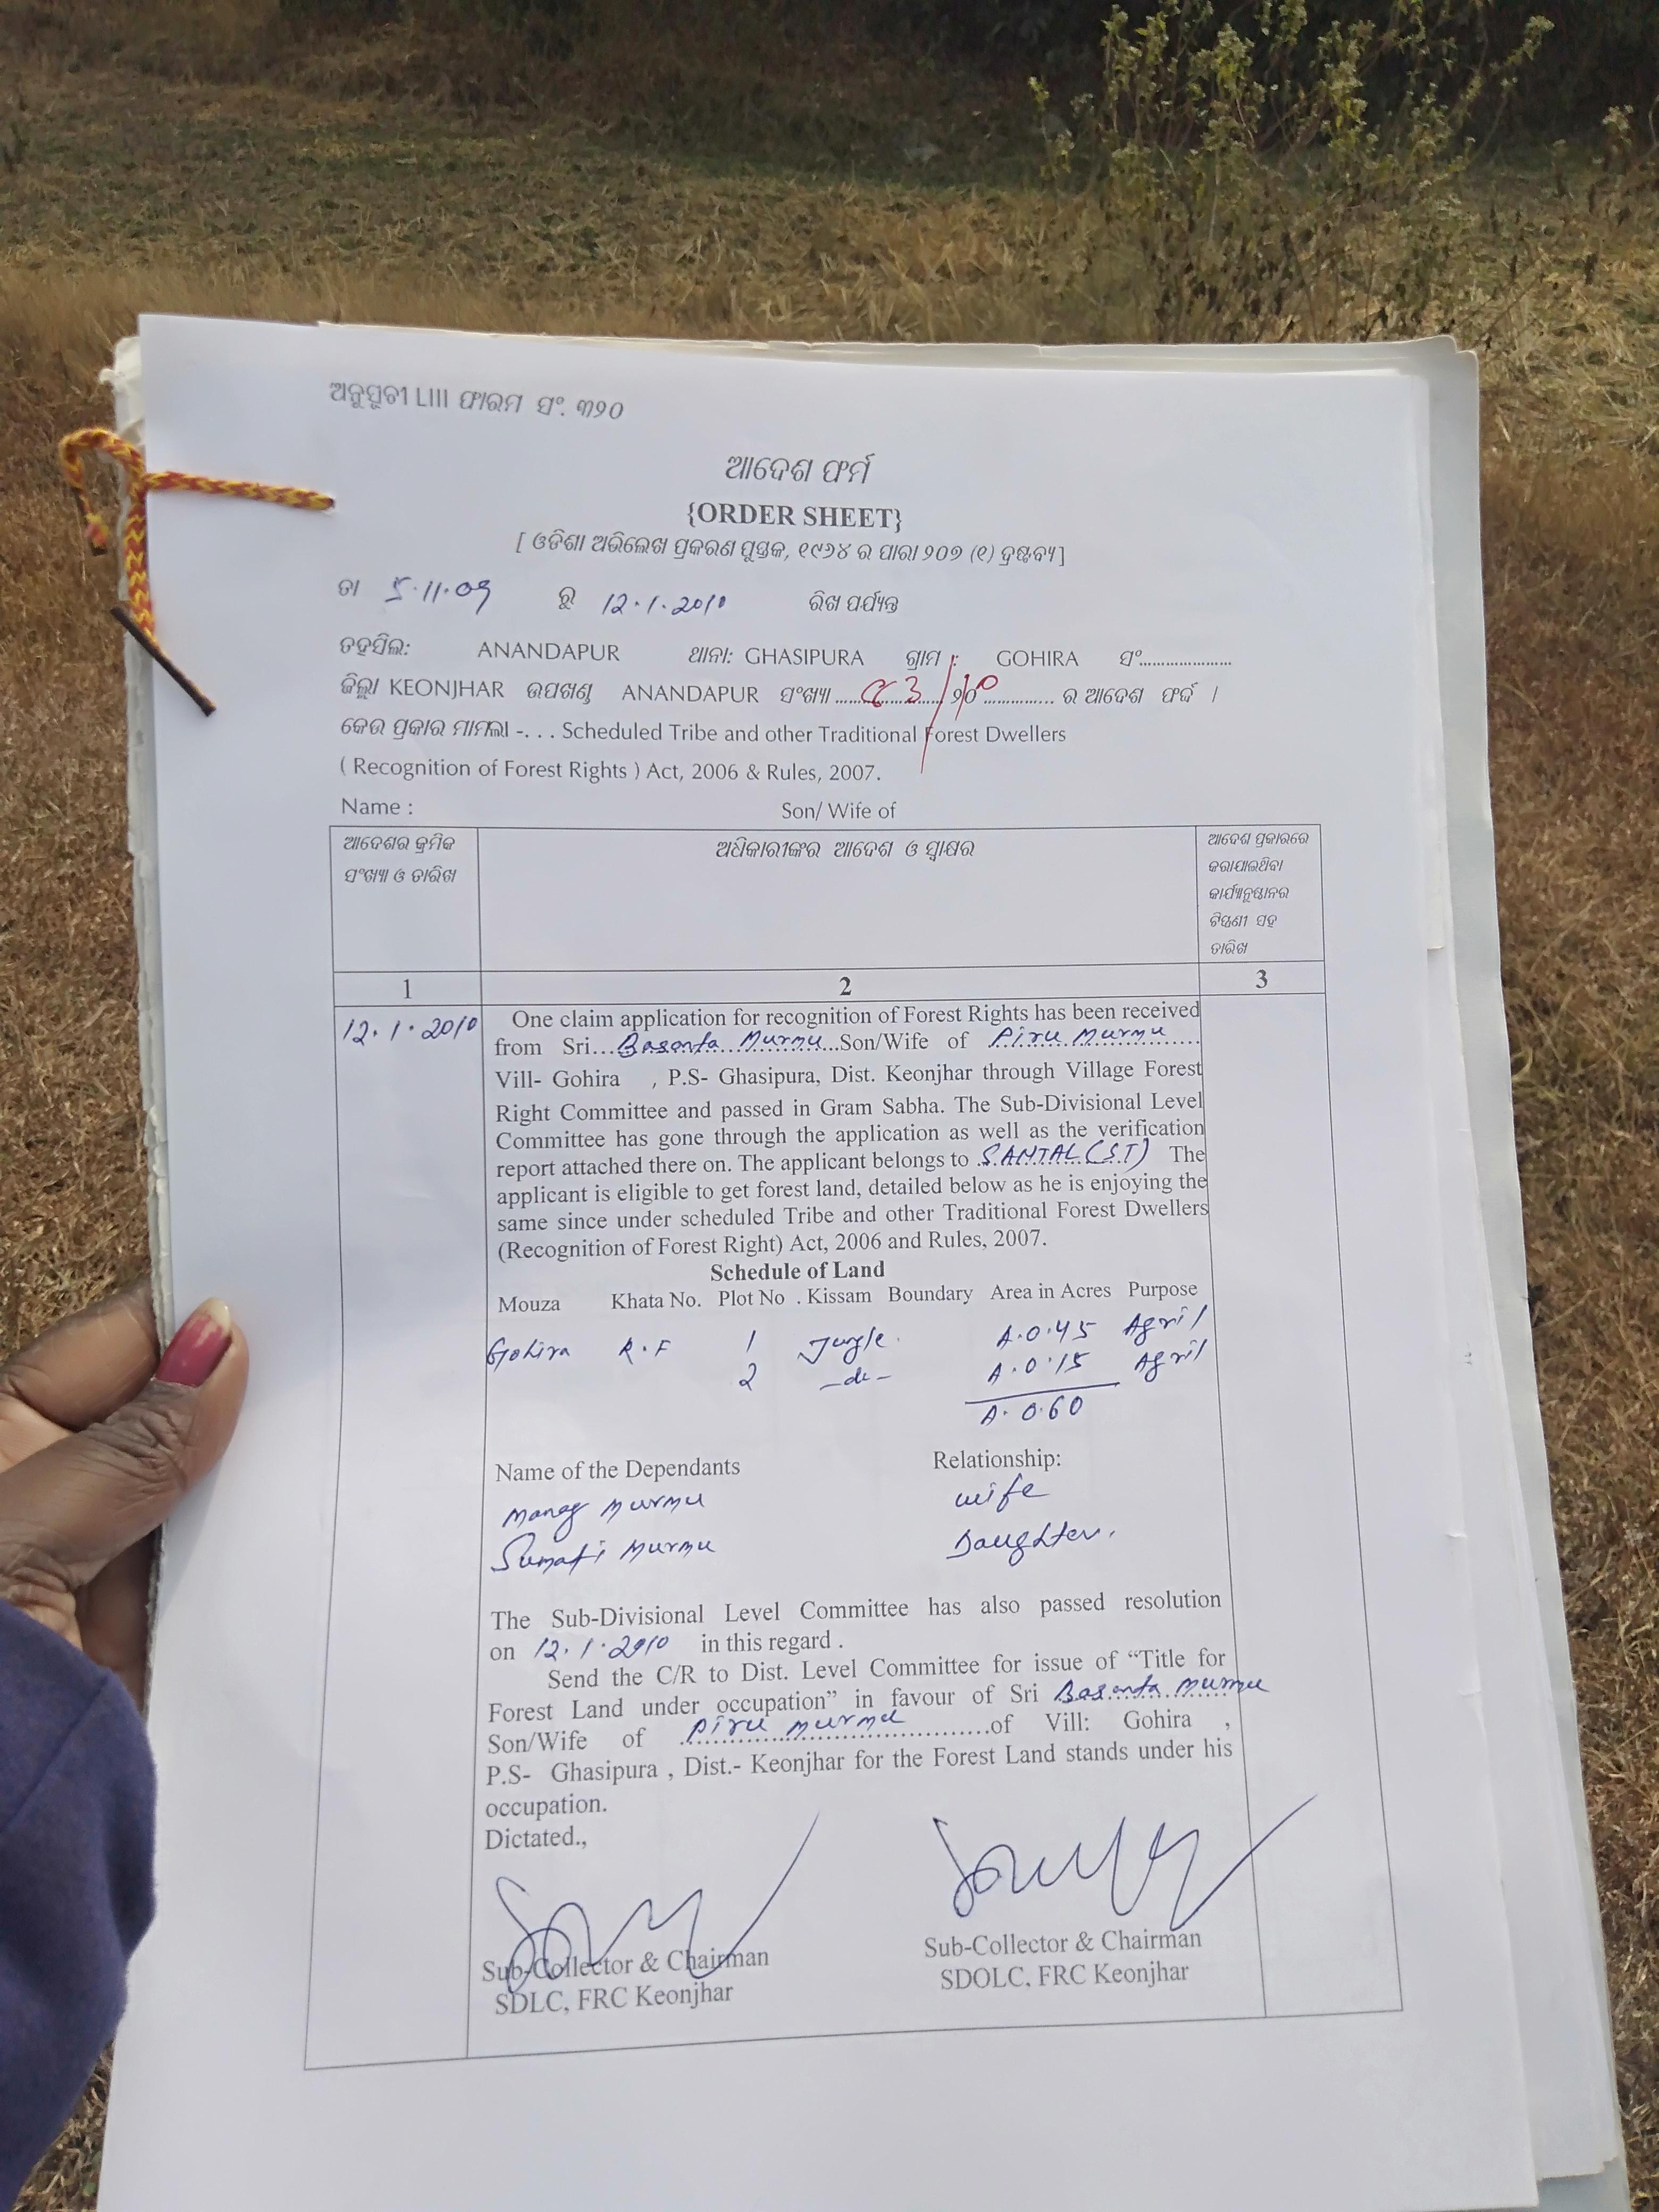 ଅନୁସୂଚୀ LIII ଫାରମ ସଂ. ୩୨୦
ଆଦେଶ ଫର୍ମ
{ORDER SHEET}
[ ଓଡିଶା ଅଭିଲେଖ ପ୍ରକରଣ ପୁସ୍ତକ, ୧୯୬୪ ର ପାରା ୨୦୭ (୧) ଦ୍ରଷ୍ଟବ୍ୟ ]
ତା 5.11.09 ରୁ 12.1.2010 ରିଖ ପର୍ଯ୍ୟନ୍ତ
ତହସିଲ: ANANDAPUR ଥାନା: GHASIPURA ଗ୍ରାମ : GOHIRA ସଂ.....................
ଜିଲ୍ଲା KEONJHAR ଉପଖଣ୍ଡ ANANDAPUR ସଂଖ୍ୟା ............... ର ଆଦେଶ ଫର୍ଦ୍ଦ ।
କେଉ ପ୍ରକାର ମାମଲା -. . . Scheduled Tribe and other Traditional Forest Dwellers
( Recognition of Forest Rights ) Act, 2006 & Rules, 2007.
Name : Son/ Wife of
ଆଦେଶର କ୍ରମିକ
ସଂଖ୍ୟା ଓ ତାରିଖ
ଅଧିକାରୀଙ୍କର ଆଦେଶ ଓ ସ୍ୱାକ୍ଷର
ଆଦେଶ ପ୍ରକାରରେ
କରାଯାଇଥିବା
କାର୍ଯ୍ୟାନୁଷ୍ଠାନର
ଟିପ୍ପଣୀ ସହ
ତାରିଖ
1 2 3
12.1.2010
One claim application for recognition of Forest Rights has been received
from Sri...Basanta Murmu...Son/Wife of Piru Murmu
Vill- Gohira , P.S- Ghasipura, Dist. Keonjhar through Village Forest
Right Committee and passed in Gram Sabha. The Sub-Divisional Level
Committee has gone through the application as well as the verification
report attached there on. The applicant belongs to SANTAL (S.T) The
applicant is eligible to get forest land, detailed below as he is enjoying the
same since under scheduled Tribe and other Traditional Forest Dwellers
(Recognition of Forest Right) Act, 2006 and Rules, 2007.
Schedule of Land
Mouza Khata No. Plot No . Kissam Boundary Area in Acres Purpose
Gohira R.F 1 Jungle. A.0.45 Agril
2 -do- A.0.15 Agril
A.0.60
Name of the Dependants Relationship:
Murmu wife
Sumati Murmu Daughter.
The Sub-Divisional Level Committee has also passed resolution
on 12.1.2010 in this regard .
Send the C/R to Dist. Level Committee for issue of “Title for
Forest Land under occupation” in favour of Sri Basanta Murmu
Son/Wife of Piru Murmu ..................of Vill: Gohira ,
P.S- Ghasipura , Dist.- Keonjhar for the Forest Land stands under his
occupation.
Dictated.,
Sub-Collector & Chairman
SDLC, FRC Keonjhar
Sub-Collector & Chairman
SDOLC, FRC Keonjhar